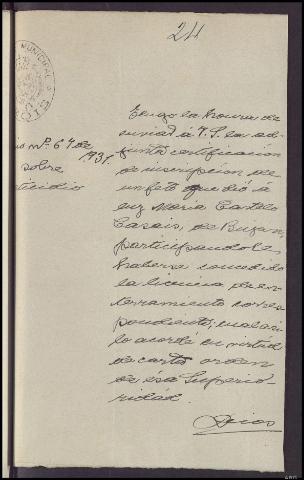 24
MUNICIPAL
nº 67 de
1931
sobre
Tengo la honra de
enviar á V.S. la ad-
junta certificación
de inscripción de
un feto que dió á
luz María Castelo
Casais, de Buzan,
participandole,
haberse concedido
la licencia de en-
terramiento corres
pondiente; cual asi
lo acorde en virtud
de carta orden
de ésa Superio-
ridad.